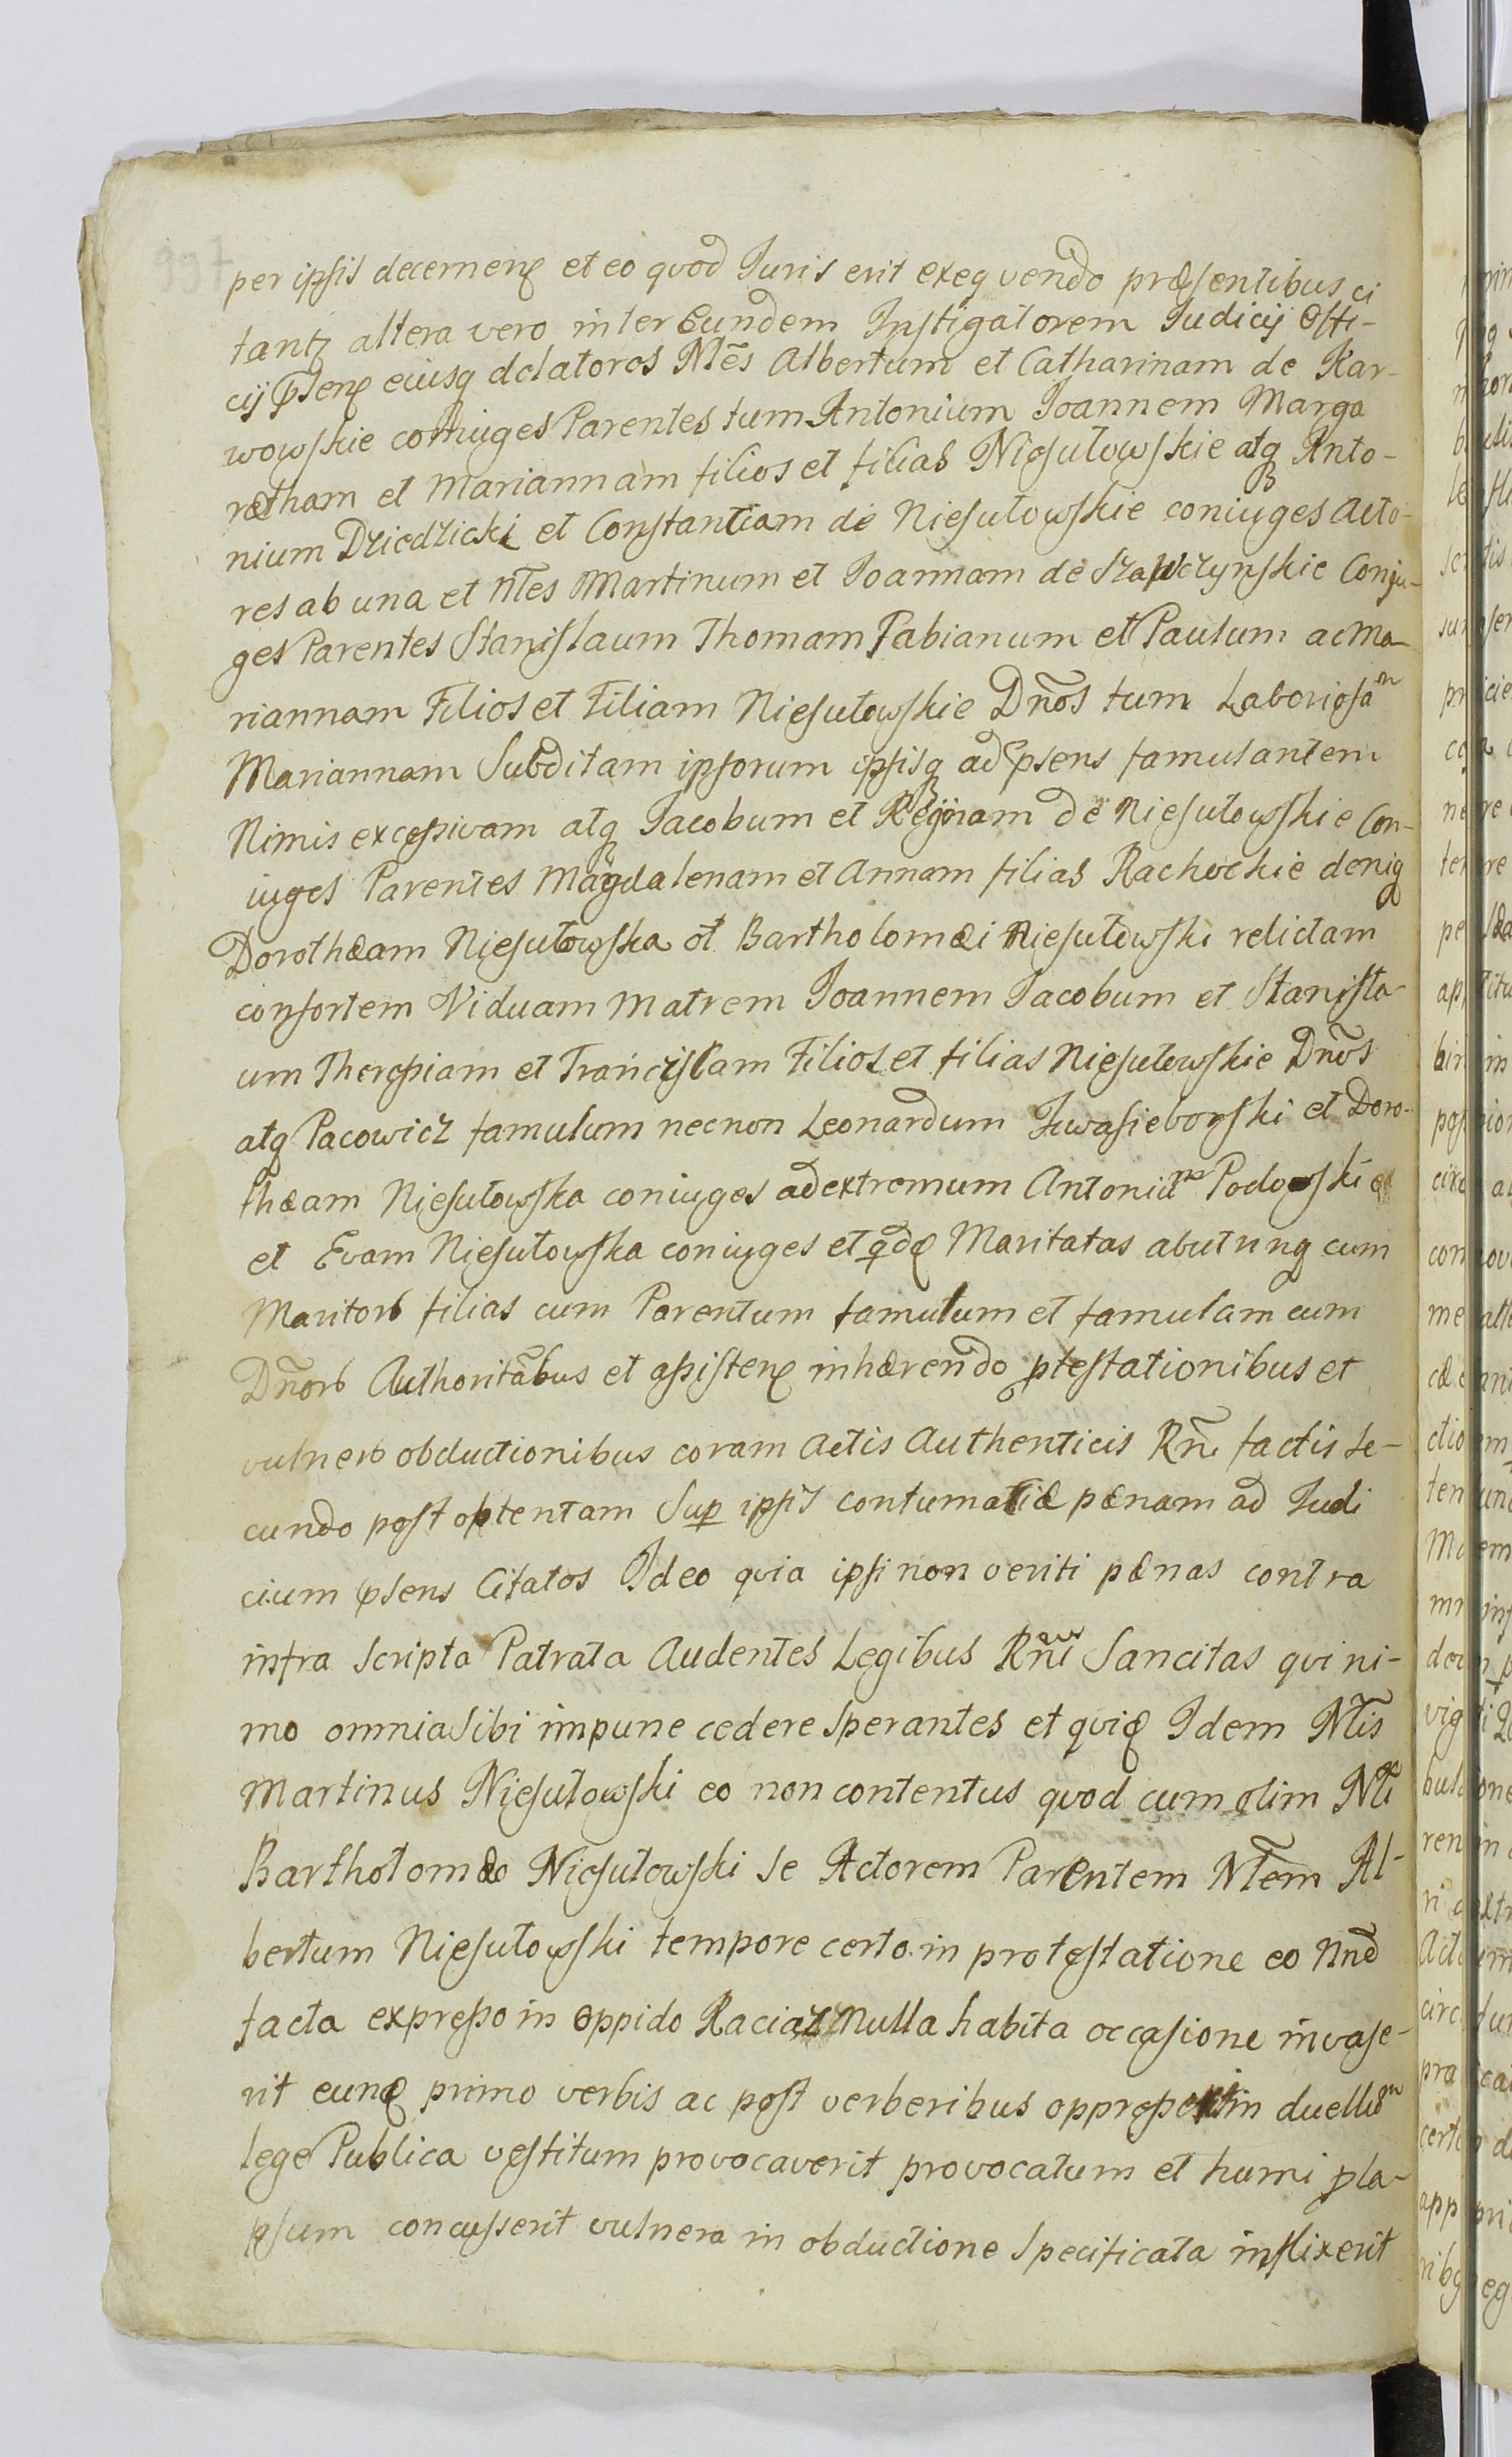 per ipsis decernenę et eo quod Iuris erit exequendo præsentibus ci
tantz altera vero inter Eundem Instigatorem Iudicij Offi-
cij pntenę eiusq delatores Nłes Albertum et Catharinam de Kar-
wowskie coniuges Parentes tum Antonium Joannem Marga
retham et Mariannam filios et filias Niesułowskie atq Anto-
nium Dziedzicki et Constantiam de Niesułowskie coniuges Acto-
res ab una et Nłes Martinum et Joannam de Szawczynskie Conju-
ges Parentes Stanislaum Thomam Fabianum et Paulum ac Ma-
riannam Filios et Filiam Niesułowskie Dños tum Laboriosam
Mariannam Subditam ipsorum ipsisq ad psens famulantem
Nimis excessivam atq Jacobum et Reginam de Niesułowskie Con-
iuges Parentes Magdalenam et Annam filias Rachockie deniq
Dorothæam Niesułowska ol Bartholomæi Niesułowski relictam
consortem Viduam Matrem Joannem Jacobum et Stanisla-
um Theresiam et Franciscam Filios et filias Niesułowskie Dños
atq Pacowicz famulum necnon Leonardum Jwasieborski et Doro-
thæam Niesułowska coniuges ad extremum Antonium Podowski
et Evam Niesułowska coniuges et qdę Maritatas ab utrinq cum
Maritorb filias cum Parentum famulum et famulam cum
Dñorb Authoritãbus et assistenę inhærendo ptestationibus et
vulnerb obductionibus coram Actis Authenticis Rñi factis se-
cundo post obtentam Sup ipsis contumaciæ pænam ad Iudi
cium psens Citatos Ideo quia ipsi non veriti pænas contra
infra scripta Patrata Audentes Legibus Rñi Sancitas qui ni-
mo omnia sibi impune cedere sperantes et quię Idem Nłis
Martinus Niesułowski eo non contentus quod cum olim Nłi
Bartholomæo Niesułowski se Actorem Parentem Nłem Al-
bertum Niesułowski tempore certo in protestatione eo Nñe
facta expresso in oppido Raciąż Nulla habita occasione invase-
rit eunę primo verbis ac post verberibus oppresserit in duellum
lege Publica vestitum provocaverit provocatum et humi pla-
psum concusserit vulnera in obductione specificata inflixerit